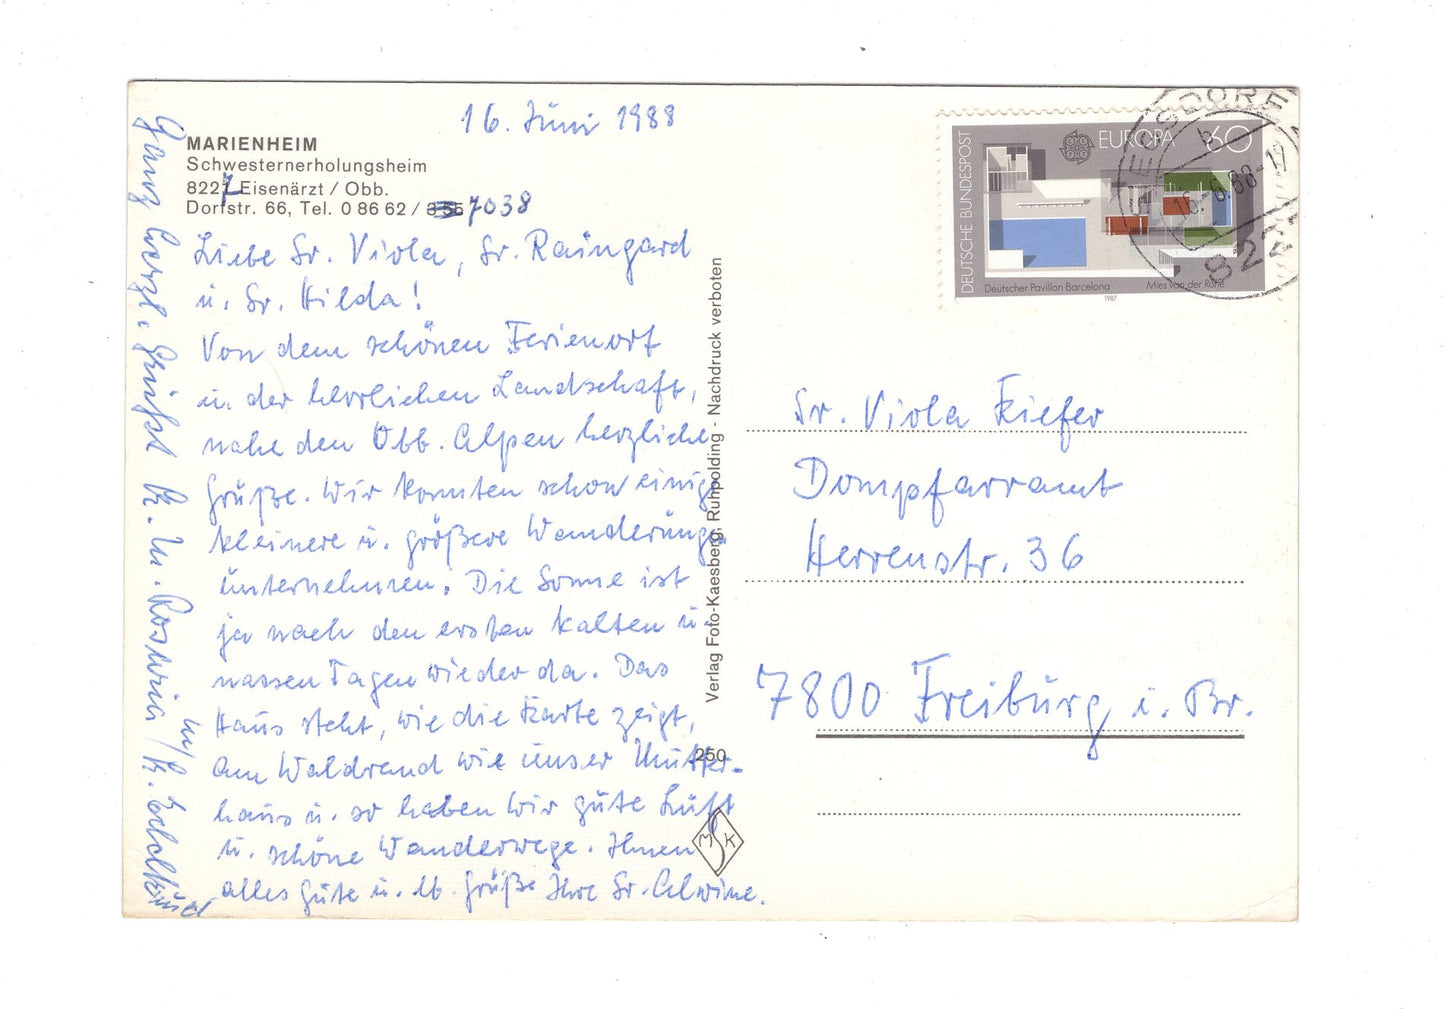 16. Juni 1988
MARIENHEIM
Schwesternerholungsheim
8227 Eisenärzt / Obb.
Dorfstr. 66, Tel. 0 86 62 / 7038
Liebe Sr. Viola, Sr. Raingard
u. Sr. Hilda!
Von dem schönen Ferienort
in der herrlichen Landschaft,
nahe den Obb. Alpen herzliche
Grüße. Wir konnten schon einige
kleinere u. größere Wanderunge
unternehmen. Die Sonne ist
ja nach den ersten kalten u.
nassen Tagen wieder da. Das
Haus steht, wie die Karte zeigt,
am Waldrand wie unser Mutter-
haus u. so haben wir gute Luft
u. schöne Wanderwege. Ihnen
alles Gute u. lb. Grüße Ihre Sr. Alwine.
Ganz herzl. grüßt
Verlag Foto-Kaesberg, Ruhpolding - Nachdruck verboten
250
DEUTSCHE BUNDESPOST
EUROPA 60
Deutscher Pavillon Barcelona
Mies van der Rohe
1987
Sr. Viola Kiefer
Dompfarramt
Herrenstr. 36
7800 Freiburg i. Br.